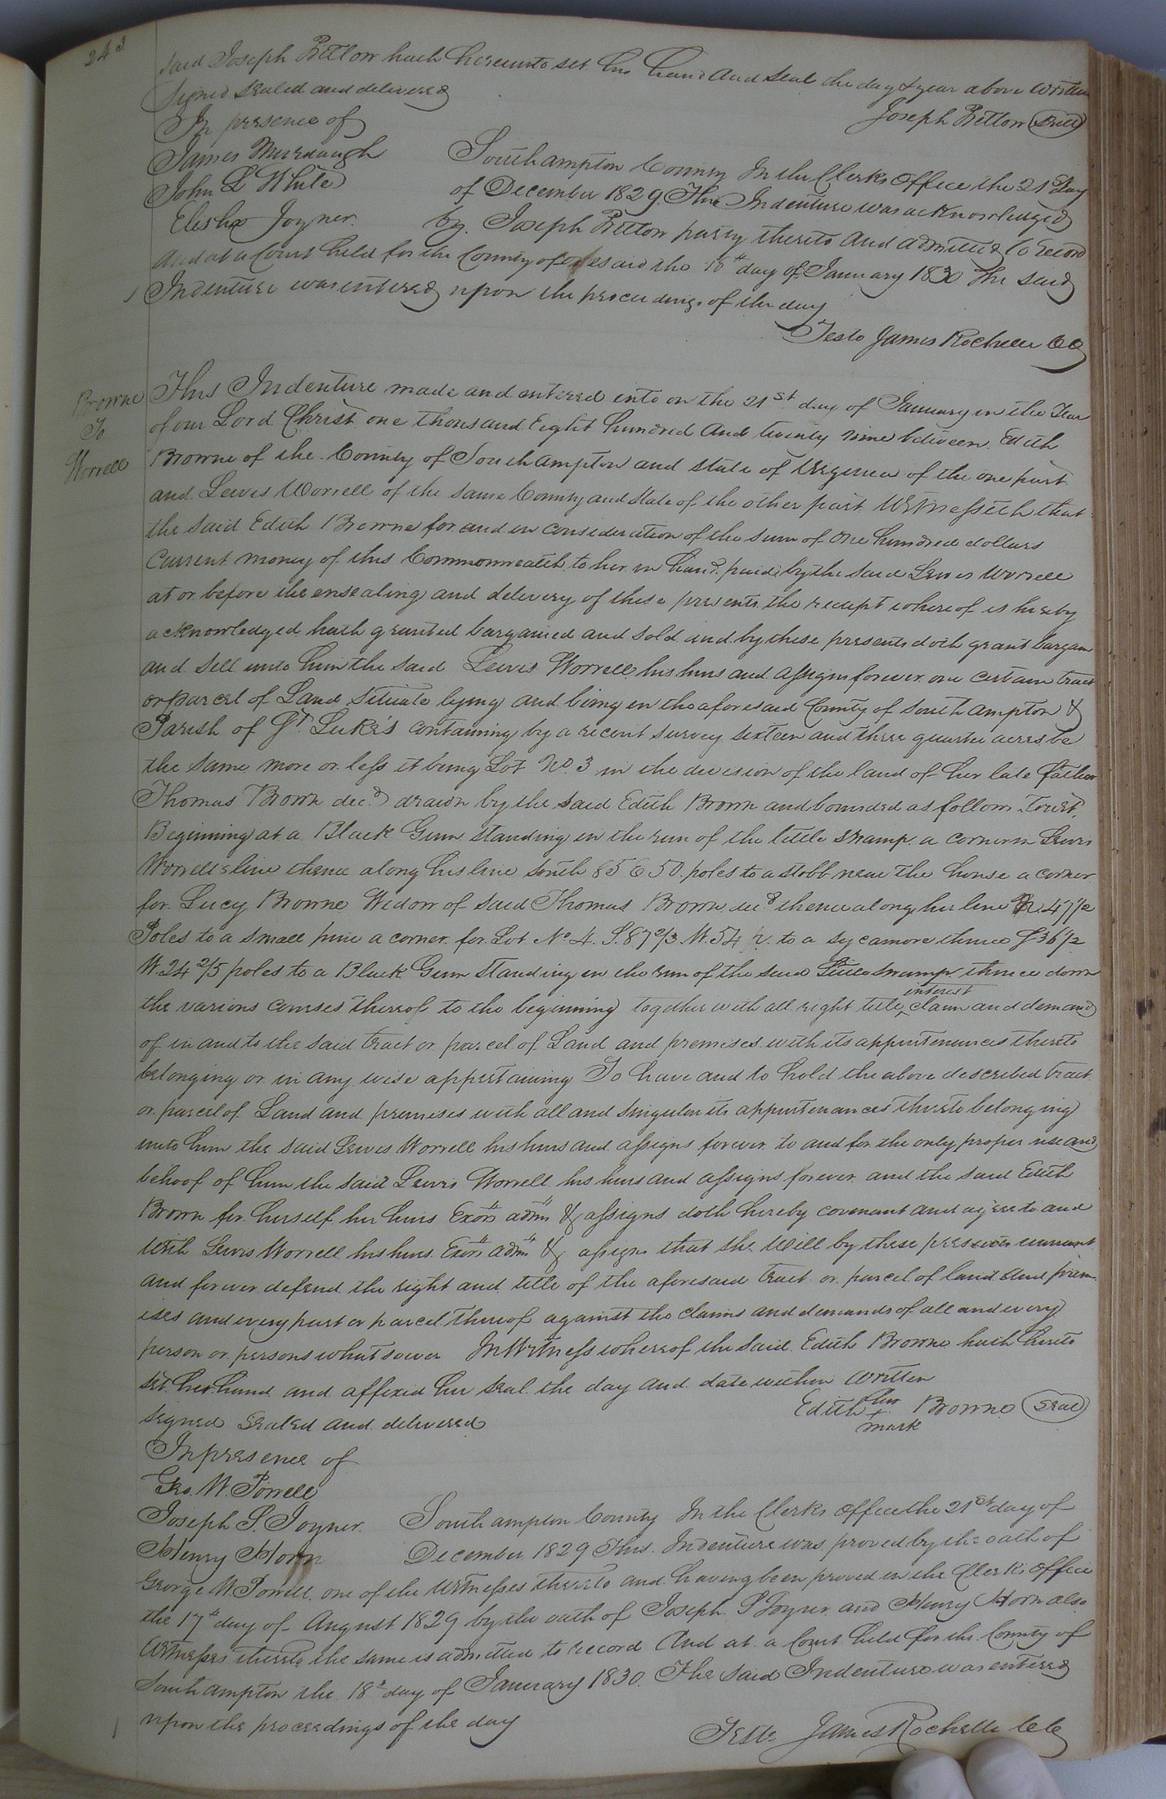 243
said Joseph Bittow hath hereunto set his hand and seal the day & year above written
Signed sealed and delivered
In presence of
Joseph Bittow (Seal)
James Murdaugh
John L White
Elisha Joyner
Southampton County In the Clerks Office the 21st day
of December 1829 This Indenture was acknowledged
by Joseph Bittow party thereto and admitted to record
and at a Court held for the County aforesaid the 18th day of January 1830 The said
Indenture was entered upon the proceedings of the day
Teste James Rochelle CC
Browne
To
Worrell
This Indenture made and entered into on the 21st day of January in the Year
of our Lord Christ one thousand Eight hundred and twenty nine between Edith
Browne of the County of Southampton and state of Virginia of the one part
and Lewis Worrell of the same County and state of the other part Witnesseth that
the said Edith Browne for and in consideration of the sum of one hundred dollars
Current money of this Commonwealth to her in hand paid by the said Lewis Worrell
at or before the ensealing and delivery of these presents the receipt whereof is hereby
acknowledged hath granted bargained and sold and by these presents doth grant bargain
and sell unto him the said Lewis Worrell his heirs and assigns forever one certain tract
or parcel of Land situate lying and being in the aforesaid County of Southampton &
Parish of St Luke's containing by a recent survey sixteen and three quarter acres be
the same more or less it being Lot No 3 in the division of the land of her late father
Thomas Brown decd drawn by the said Edith Brown and bounded as follows
Beginning at a Black Gum standing in the run of the little swamp a corner in Lewis
Worrell's line thence along his line south 85 E 50 poles to a stobb near the house a corner
for Lucy Browne Widow of said Thomas Brown decd thence along her line 47 1/2
Poles to a small pine a corner for Lot No 4. S. 87 2/3 W. 54 p. to a sycamore thence S 36 1/2
W. 24 2/5 poles to a Black Gum standing in the run of the said Little swamp thence down
the various courses thereof to the beginning together with all right title, interest claim and demand
of in and to the said tract or parcel of Land and premises with its appurtenances thereto
belonging or in any wise appertaining To have and to hold the above described tract
or parcel of Land and premises with all and singular its appurtenances thereto belonging
unto him the said Lewis Worrell his heirs and assigns forever to and for the only proper use and
behoof of him the said Lewis Worrell his heirs and assigns forever and the said Edith
Brown for herself her heirs Exors adms & assigns doth hereby covenant and agree to and
with Lewis Worrell his heirs Exors adms & assigns that she will by these presents warrant
and forever defend the right and title of the aforesaid tract or parcel of land and prem
ises and every part or parcel thereof against the claims and demands of all and every
person or persons whatsoever In Witness whereof the said Edith Browne hath hereto
set her hand and affixed her seal the day and date within written
signed sealed and delivered
Edith her + mark Browne (Seal)
In presence of
Geo. W. Powell
Joseph S. Joyner
Henry Horn
Southampton County In the Clerks office the 21st day of
December 1829 This Indenture was proved by the oath of
George W Powell one of the witnesses thereto and having been proved in the Clerks office
the 17th day of August 1829 by the oath of Joseph S Joyner and Henry Horn also
Witnesses thereto the same is admitted to record And at a Court held for the County of
Southampton the 18th day of January 1830 The said Indenture was entered
upon the proceedings of the day
Teste James Rochelle CC